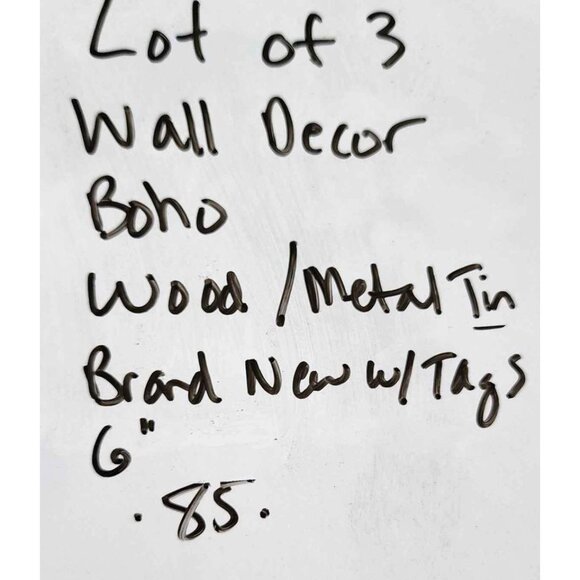 Lot of 3
Wall Decor
Boho
Wood / Metal Tin
Brand New w/ Tags
6"
. 85.